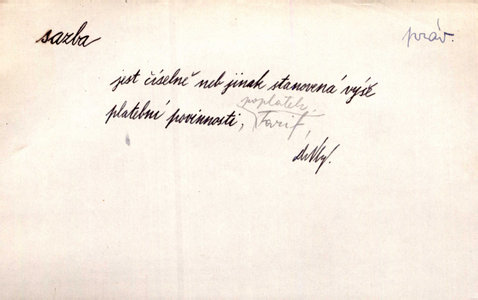 sazba
práv.
jest číselně neb jinak stanovená výše
poplatek,
platební povinnosti; tarif,